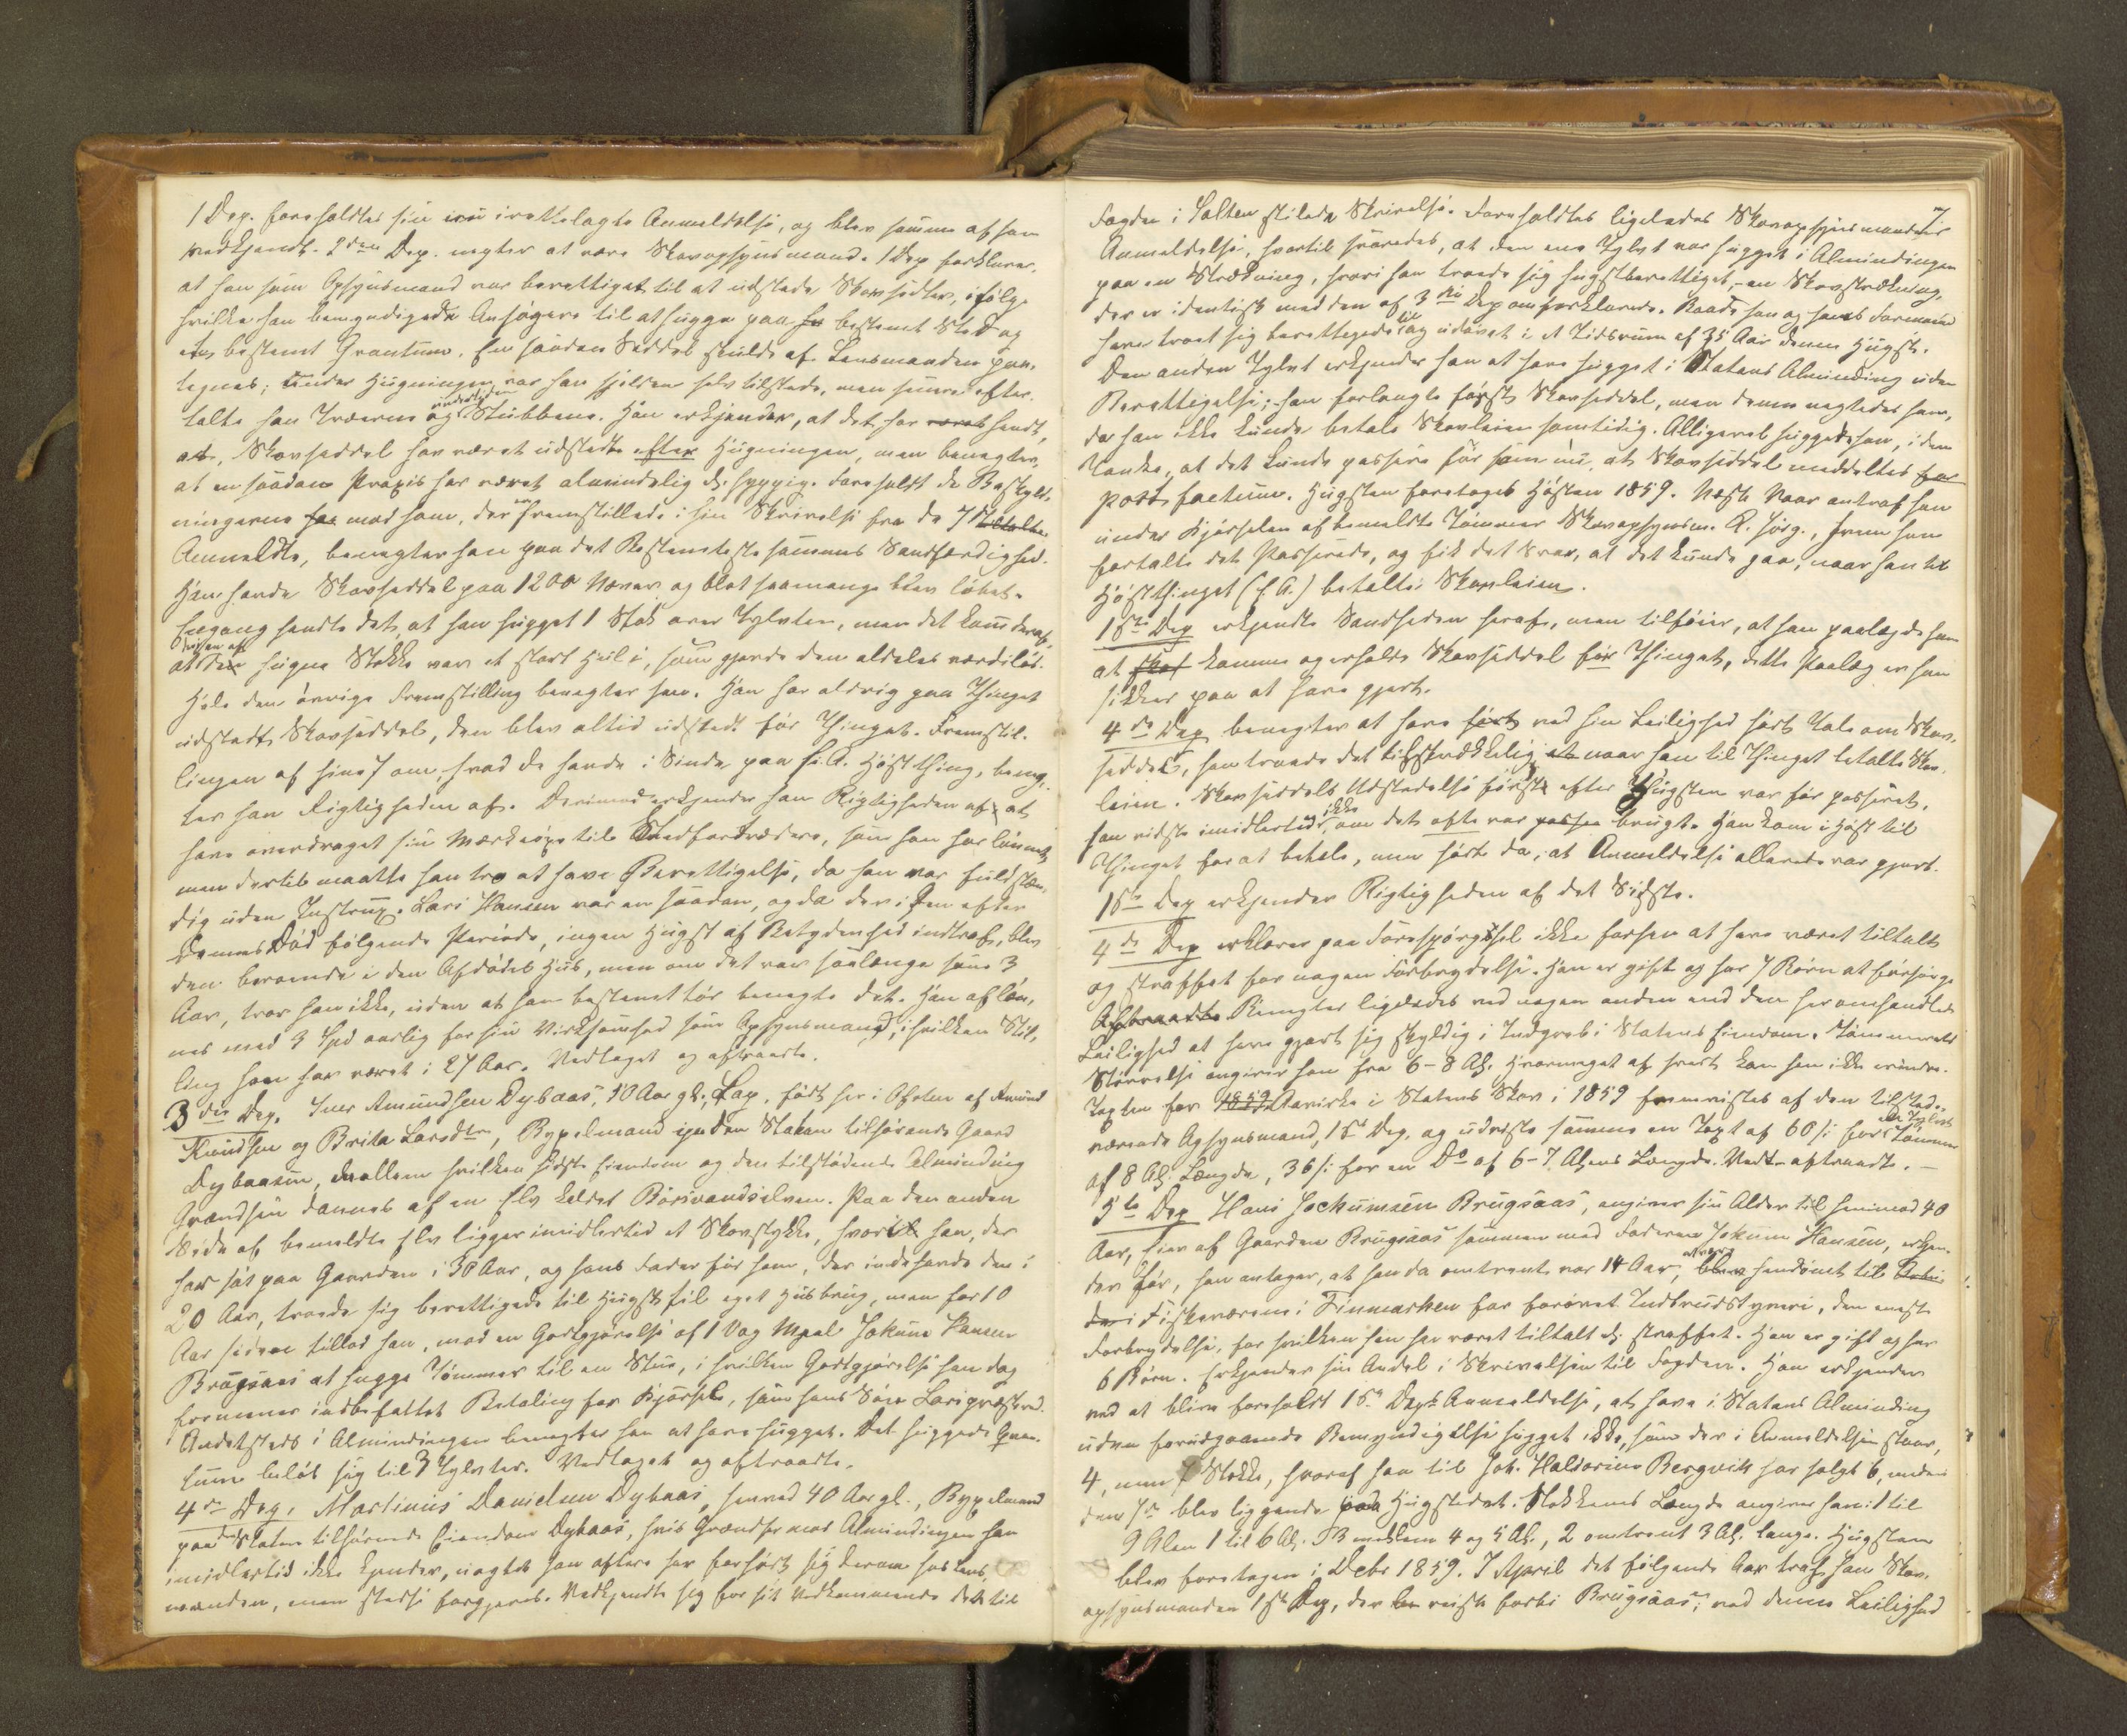 1 Dep. foreholdtes sin nu irettelagte Anmeldelse, og blev samme af ham
vedkjendt. 2den Dep. negter at være Skovopsynsmand. 1 Dep forklarer,
at han som Opsynsmand var berettiget til at udstede Skovsedler, ifølge
hvilke han bemyndigede Ansøgere til at hugge paa bestemt Sted og
et bestemt Qvantum. En saadan Seddel skulde af Lensmanden paa-
tegnes; under Hugningen var han sjelden selv tilstede, men senere efter-
talte han Træerne og undertiden Stubbene. Han erkjender, at det har været hendt,
at, Skovseddel har været udstedt efter Hugningen, men benegter,
at en saadan Praxis har været almindelig & hyppig. Foreholdt de Beskyld-
ningerne for mod ham, der er fremstillede i hin Skrivelse fra de 7 Tiltalte
Anmeldte, benegter han paa det Bestemteste sammes Sandfærdighed.
Han havde Skovseddel paa 1200 Næver og blot saamange blev løbet.
Engang hendte det, at han hugget 1 Stok over Tylvten, men det kom deraf,
at i en af den hugne Stokke var et stort Hul i, som gjorde den aldeles værdiløs.
Hele den øvrige Fremstilling benegter han. Han har aldrig paa Thinget
udstedt Skovseddel, den blev altid udstedt før Thinget. Fremstil-
lingen af hine 7 om, hvad de havde i Sinde paa f. A. Høstthing, beneg-
ter han Rigtigheden af. Derimod erkjender han Rigtigheden af, at
have overdraget sin Mærkeøxe til Stedfortrædere, som han har lønnet,
men dertil maatte han tro at have Berettigelse, da han var fuldstæn-
dig uden Instrux. Lars Hansen var en saadan, og da der i den efter
dennes Død følgende Periode, ingen Hugst af Betydenhed indtraf, blev
den beroende i den Afdødes Hus, men om det var saalænge som 3
Aar, tror han ikke, uden at han bestemt tør benegte det. Han afløn-
nes med 3 Spd aarlig for sin Virksomhed som Opsynsmand, i hvilken Stil-
ling han har været i 27 Aar. Vedtaget og aftraadte.
3die Dep. Iver Amundsen Dybaas, 50 Aar gl., Lap, født her i Ofoten af Amund
Knudsen og Brita Larsdtr, Bygselmand paa den Staten tilhørende Gaard
Dybaasen, mellem hvilken sidste Eiendom og den tilstødende Alminding
Grændsen dannes af en Elv kaldet Børsvandselven. Paa den anden
Side af bemeldte Elv ligger imidlertid et Skovstykke, hvortil han, der
har sat paa Gaarden i 30 Aar, og hans Fader før ham, der indehavde den i
20 Aar, troede sig berettigede til Hugst til eget Husbrug, men for 10
Aar siden tillod han, mod en Godtgjørelse af 1 Vog Meel Jokum Hansen
Brugsaas at hugge Tømmer til en Stue, i hvilken Godtgjørelse han dog
formener indbefattet Betaling for Kjørsel, som hans Søn Lars præsterede.
Andetsteds i Almindingen benegter han at have hugget. Det huggede Qvan-
tum beløb sig til 3 Tylvter. Vedtaget og aftraadte.
4de Dep. Martinus Danielsen Dybaas, henved 40 Aar gl., Bygselmand
paa den Staten tilhørende Eiendom Dybaas, hvis Grændse mod Almindingen han
imidlertid ikke kjender, uagtet han oftere har forhørt sig derom hos Lens-
manden, men stedse forgjæves. Vedkjendte sig for sit Vedkommende det til
7.
Fogden i Salten stilede Skrivelse. Foreholdtes ligeledes Skovopsynsmandens
Anmeldelse, hvortil svaredes, at den ene Tylvt var hugget i Almindingen
paa en Strækning, hvori han troede sig hugstberettiget, en Skovstrækning,
der er identisk med den af 3die Dep omforklarede. Baade han og hans Formand
have troet sig berettigede til og udøvet i et Tidsrum af 35 Aar denne Hugst.
Den anden Tylvt erkjender han at have hugget i Statens Alminding uden
Berettigelse; han forlangte først Skovseddel, men denne negtedes ham,
da han ikke kunde betale Skovleien samtidig. Alligevel huggede han, i den
Tanke, at det kunde passere før som nu, at Skovseddel meddeltes
post factum. Hugsten foretoges Høsten 1859. Næste Vaar antraf han
under Kjørselen af bemeldte Tømmer Skovopsynsm. , hvem han
fortalte det Passerede, og fik det Svar, at det kunde gaa, naar han til
Høstthinget (f. A.) betalte Skovleien.
1ste Dep erkjendte Sandheden heraf, men tilføier, at han paalagde ham
at komme og erholde Skovseddel før Thinget, dette Paalæg er han
sikker paa at have gjort.
4de Dep benegter at have ved hin Leilighed hørt Tale om Skov-
seddel, han troede det tilstrækkelig at naar han til Thinget betalte Skov-
leien. Skovseddels Udstedelse først efter Hugsten var før passeret,
han vidste imidlertid ikke, om det ofte var brugt. Han kom i Høst til
Thinget for at betale, men hørte da, at Anmeldelse allerede var gjort.
1ste Dep erkjender Rigtigheden af det Sidste.
4de Dep erklærer paa Forespørgsel ikke forhen at have været tiltalt
og straffet for nogen Forbrydelse. Han er gift og har 7 Børn at forsørge
Aftraadte Benegter ligeledes ved nogen anden end den her omhandlede
Leilighed at have gjort sig skyldig i Indgreb i Statens Eiendom. Tømmerets
Størrelse angiver han fra 6–8 Al. Hvormeget af hvert kan han ikke erindre.
Taxten for 1859 Aavirke i Statens Skov i 1859 fremvistes af den tilstede-
værende Opsynsmand, 1ste Dep. og udviste samme en Taxt af 60 s. for en Tylvt Tømmer
af 8 Al. Længde, 36 s. for en Do af 6–7 Alens Længde. Vedt. aftraadte. –
5te Dep Hans Jochumsen Brugsaas, angiver sin Alder til henimod 40
Aar, Eier af Gaarden Brugsaas sammen med Faderen Jokum Hansen, erkjen-
der før, han antager, at han da omtrent var 14 Aar, at være blev handømt til
i Fiskeværene i Finmarken for forøvet Indbrudstyveri, den eneste
Forbrydelse, for hvilken han har været tiltalt & straffet. Han er gift og har
6 Børn. Erkjender sin Andel i Skrivelsen til Fogden. Han erkjender
ved at blive foreholdt 1ste Deps Anmeldelse, at have i Statens Alminding
uden forudgaaende Bemyndigelse hugget ikke, som der i Anmeldelsen staar,
4, men 7 Stokke, hvoraf han til Joh. Haldorsen Bergvik har solgt 6, medens
den 7de blev liggende paa Hugstedet. Stokkenes Længde angiver han: 1 til
9 Alen 1 til 6 Al. 3 mellem 4 og 5 Al., 2 omtrent 3 Al. lange. Hugsten
blev foretagen i Decbr 1859. I April det følgende Aar traf han Skov-
opsynsmanden 1ste Dep, der reiste forbi Brugsaas; ved denne Leilighed